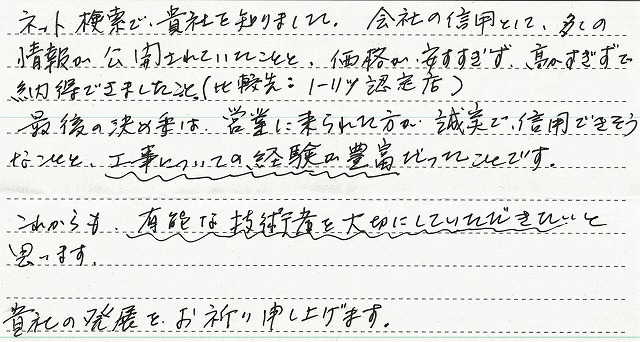 ネット検索で、貴社を知りました。 会社の信用として、多くの
情報が公開されていたことと、価格が、安すぎず、高かすぎずで
納得できましたこと。(比較先：ノーリツ認定店)
最後の決め手は、営業に来られた方が、誠実で、信用できそう
なことと、工事についての経験が豊富だったことです。
これからも、有能な技術者を大切にしていただきたいと
思います。
貴社の発展を、お祈り申し上げます。